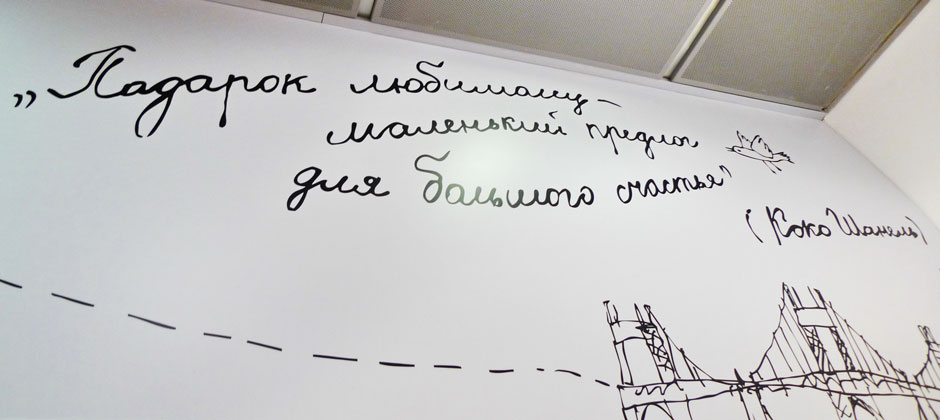 „Подарок любимому –
маленький предлог
для большого счастья”
(Коко Шанель)